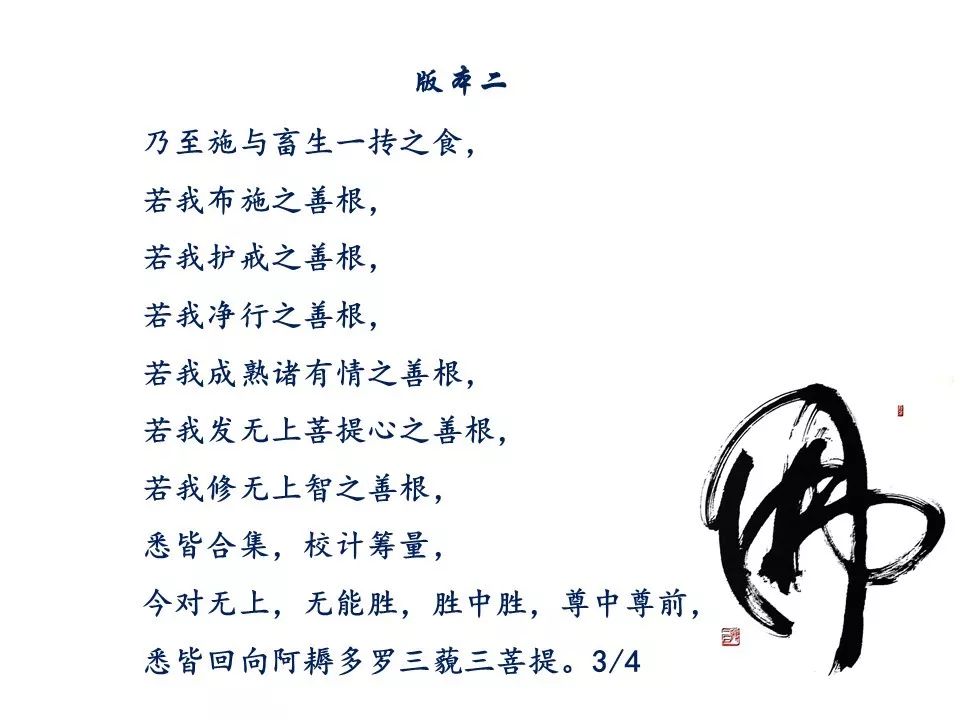 版本二
乃至施与畜生一抟之食，
若我布施之善根，
若我护戒之善根，
若我净行之善根，
若我成熟诸有情之善根，
若我发无上菩提心之善根，
若我修无上智之善根，
悉皆合集，校计筹量，
今对无上，无能胜，胜中胜，尊中尊前，
悉皆回向阿耨多罗三藐三菩提。3/4
佛